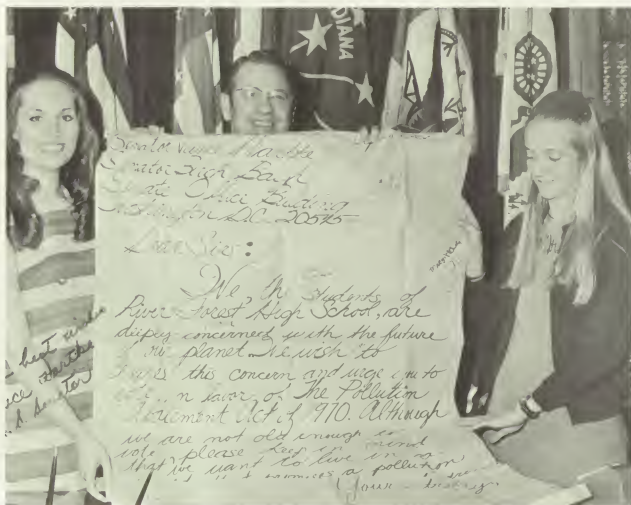 INDIANA
Senator Vance Hartke
Senator Birch Bayh
Senate Office Building
Washington D.C. 20515
Dear Sirs:
We the students of
River Forest High School, are
deeply concerned with the future
of our planet. We wish to
this concern and urge you to
in favor of The Pollution
Act of 1970. Although
we are not old enough to
vote please keep in mind
that we want to live in
a pollution
best wishes
Vance Hartke
U.S. Senator